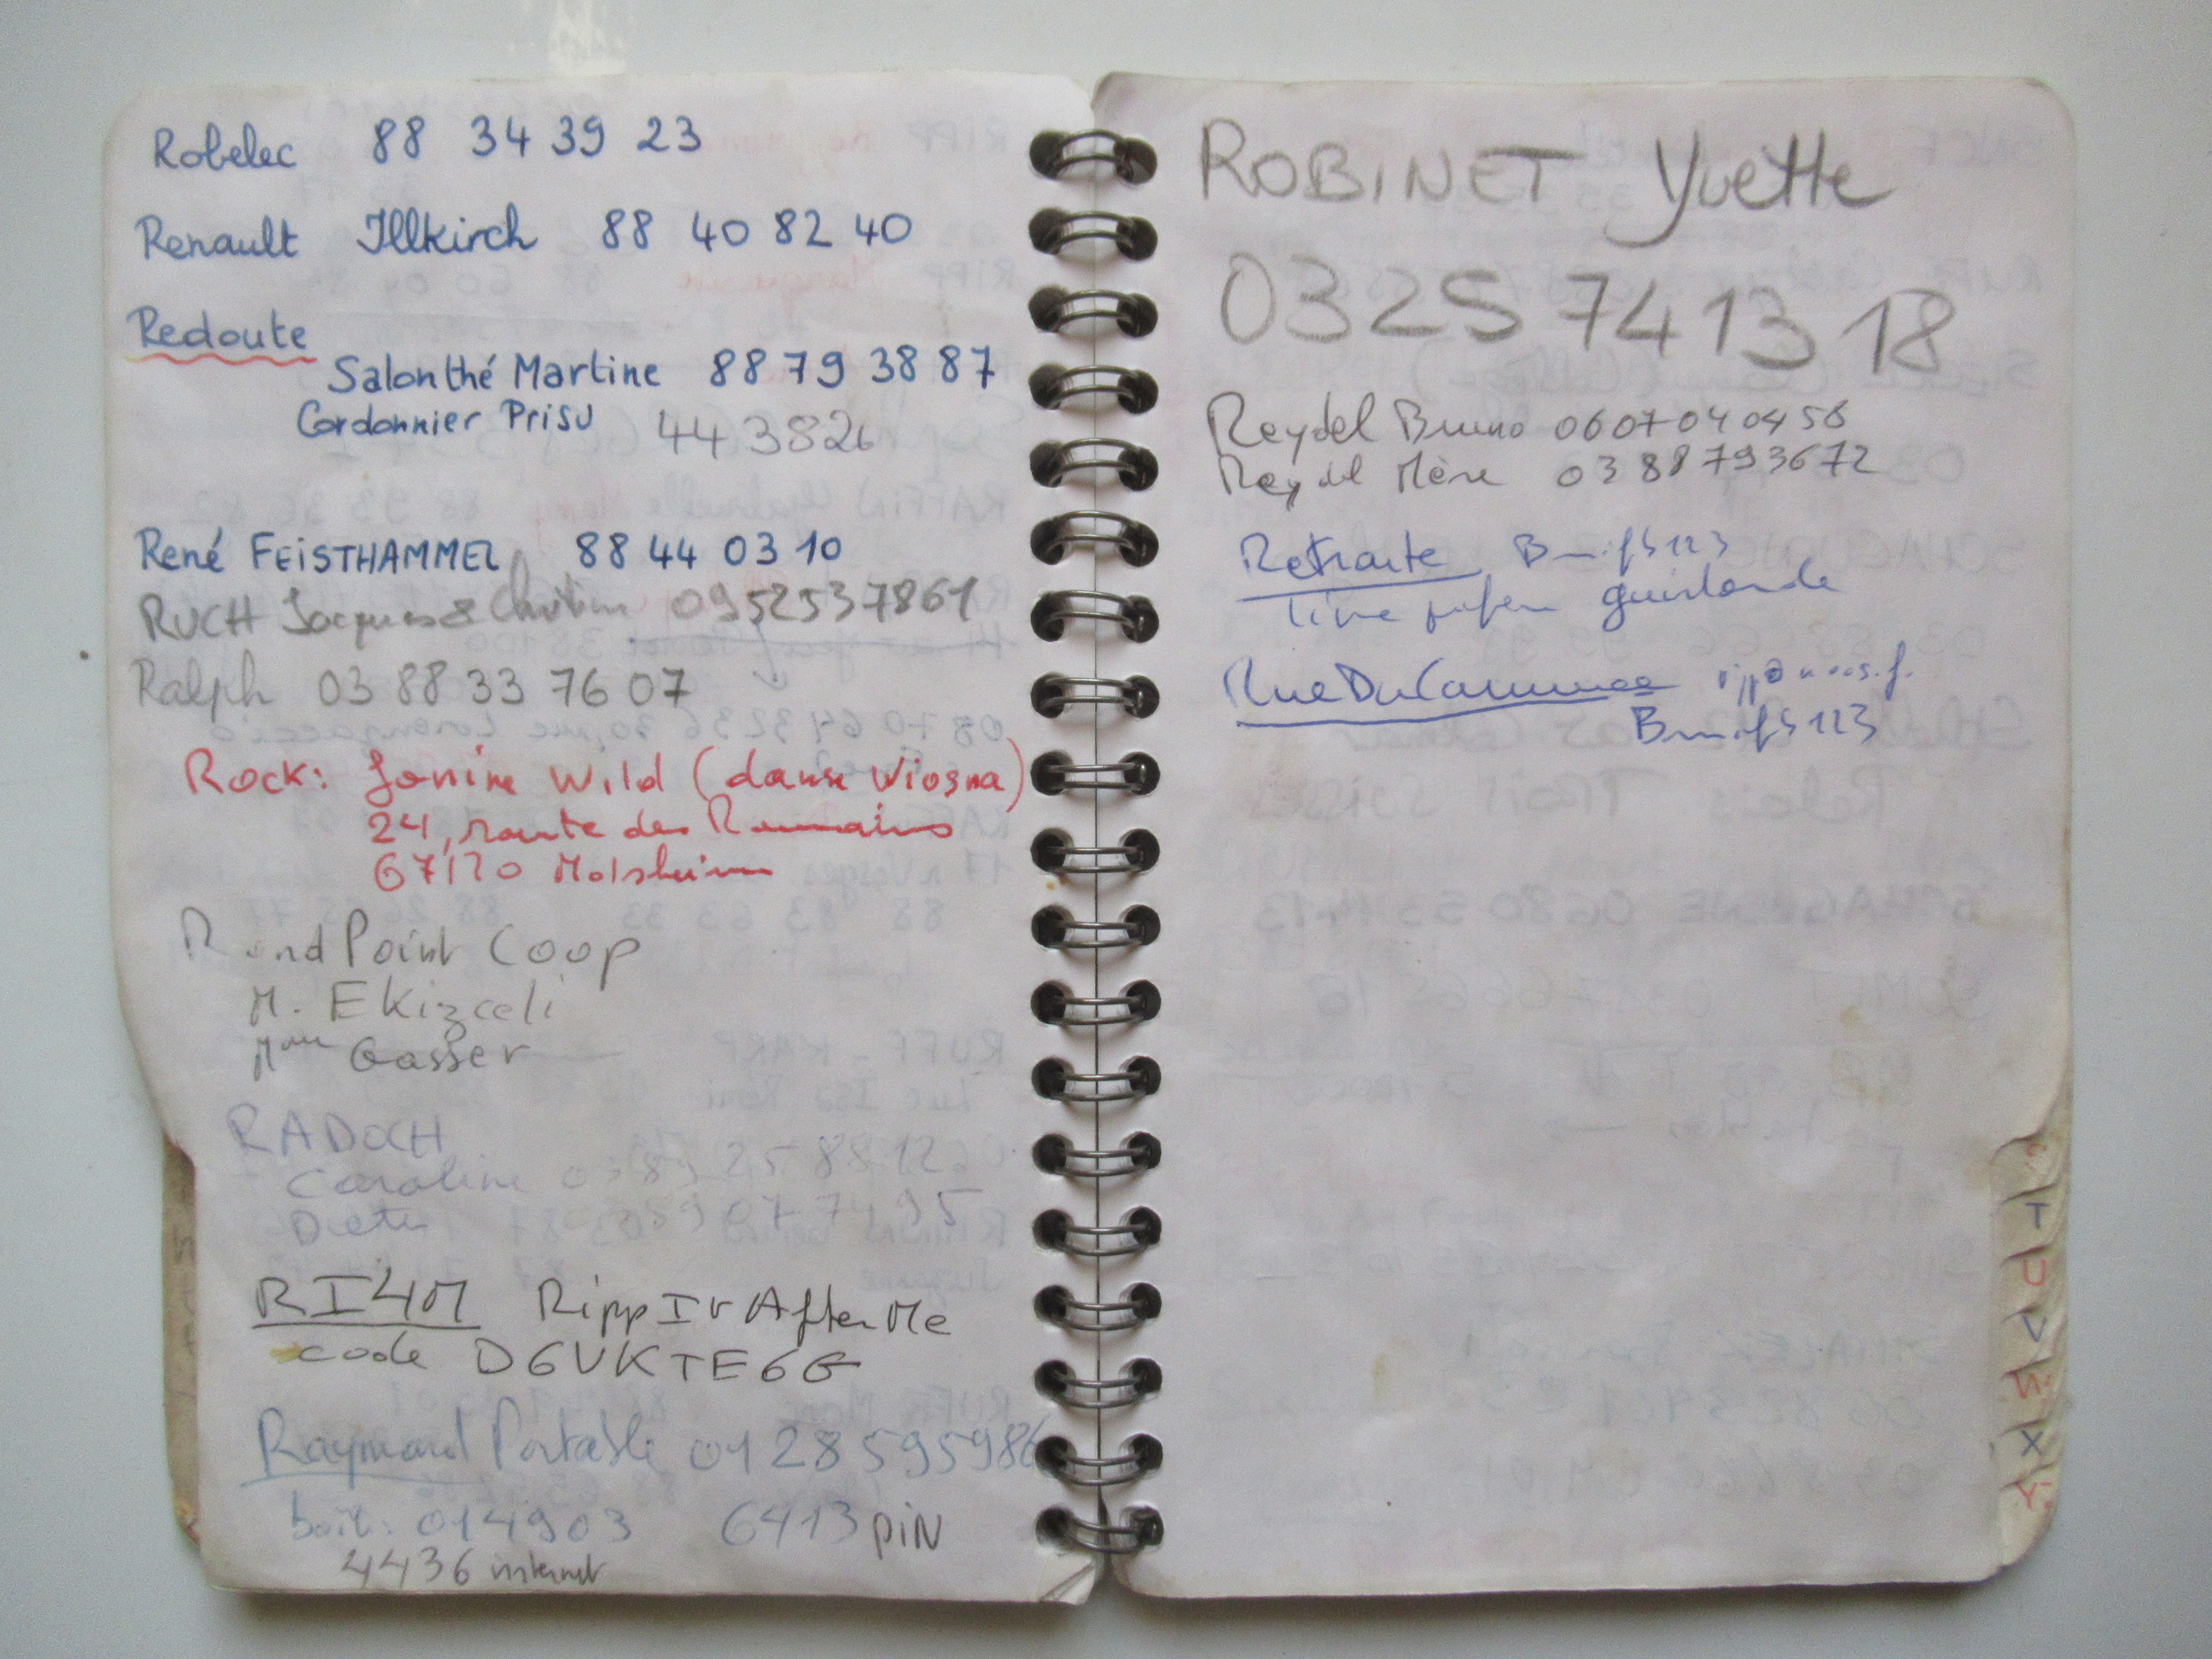 Robelec 88 34 39 23
Renault Illkirch 88 40 82 40
Redoute
Salon thé Martine 88 79 38 87
Cordonnier Prisu 44 38 26
René FEISTHAMMEL 88 44 03 10
RUCH Jacques & 0952537861
Ralph 03 88 33 76 07
Rock: Janine Wild (danse Wiosna)
24, route des Romains
67120 Molsheim
Rond Point Coop
M. Ekizceli
Mme Gasser
RADOCH
Caroline
RI4M Ripp Iv After Me
code D6VKTE6G
Raymond Portable
boit: 014903 6413 PIN
4436 internet
ROBINET Yvette
03 25 74 13 18
Reydel Bruno 0607040456
Reydel Mère 0388793672
Retraite
guirlande
RueDuCommerce
T
U
V
W
X
Y